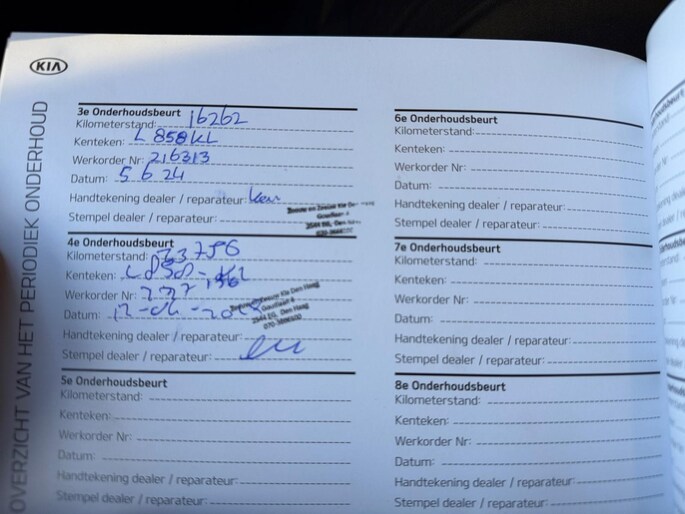 KIA
OVERZICHT VAN HET PERIODIEK ONDERHOUD
3e Onderhoudsbeurt
Kilometerstand: 16262
Kenteken: L 858KL
Werkorder Nr: 216313
Datum: 5 6 24
Handtekening dealer / reparateur:
Stempel dealer / reparateur:
4e Onderhoudsbeurt
Kilometerstand:
Kenteken: L858-KL
Werkorder Nr:
Datum:
Den Haag
Handtekening dealer / reparateur:
Stempel dealer / reparateur:
5e Onderhoudsbeurt
Kilometerstand:
Kenteken:
Werkorder Nr:
Datum:
Handtekening dealer / reparateur:
Stempel dealer / reparateur:
6e Onderhoudsbeurt
Kilometerstand:
Kenteken:
Werkorder Nr:
Datum:
Handtekening dealer / reparateur:
Stempel dealer / reparateur:
7e Onderhoudsbeurt
Kilometerstand:
Kenteken:
Werkorder Nr:
Datum:
Handtekening dealer / reparateur:
Stempel dealer / reparateur:
8e Onderhoudsbeurt
Kilometerstand:
Kenteken:
Werkorder Nr:
Datum:
Handtekening dealer / reparateur:
Stempel dealer / reparateur: